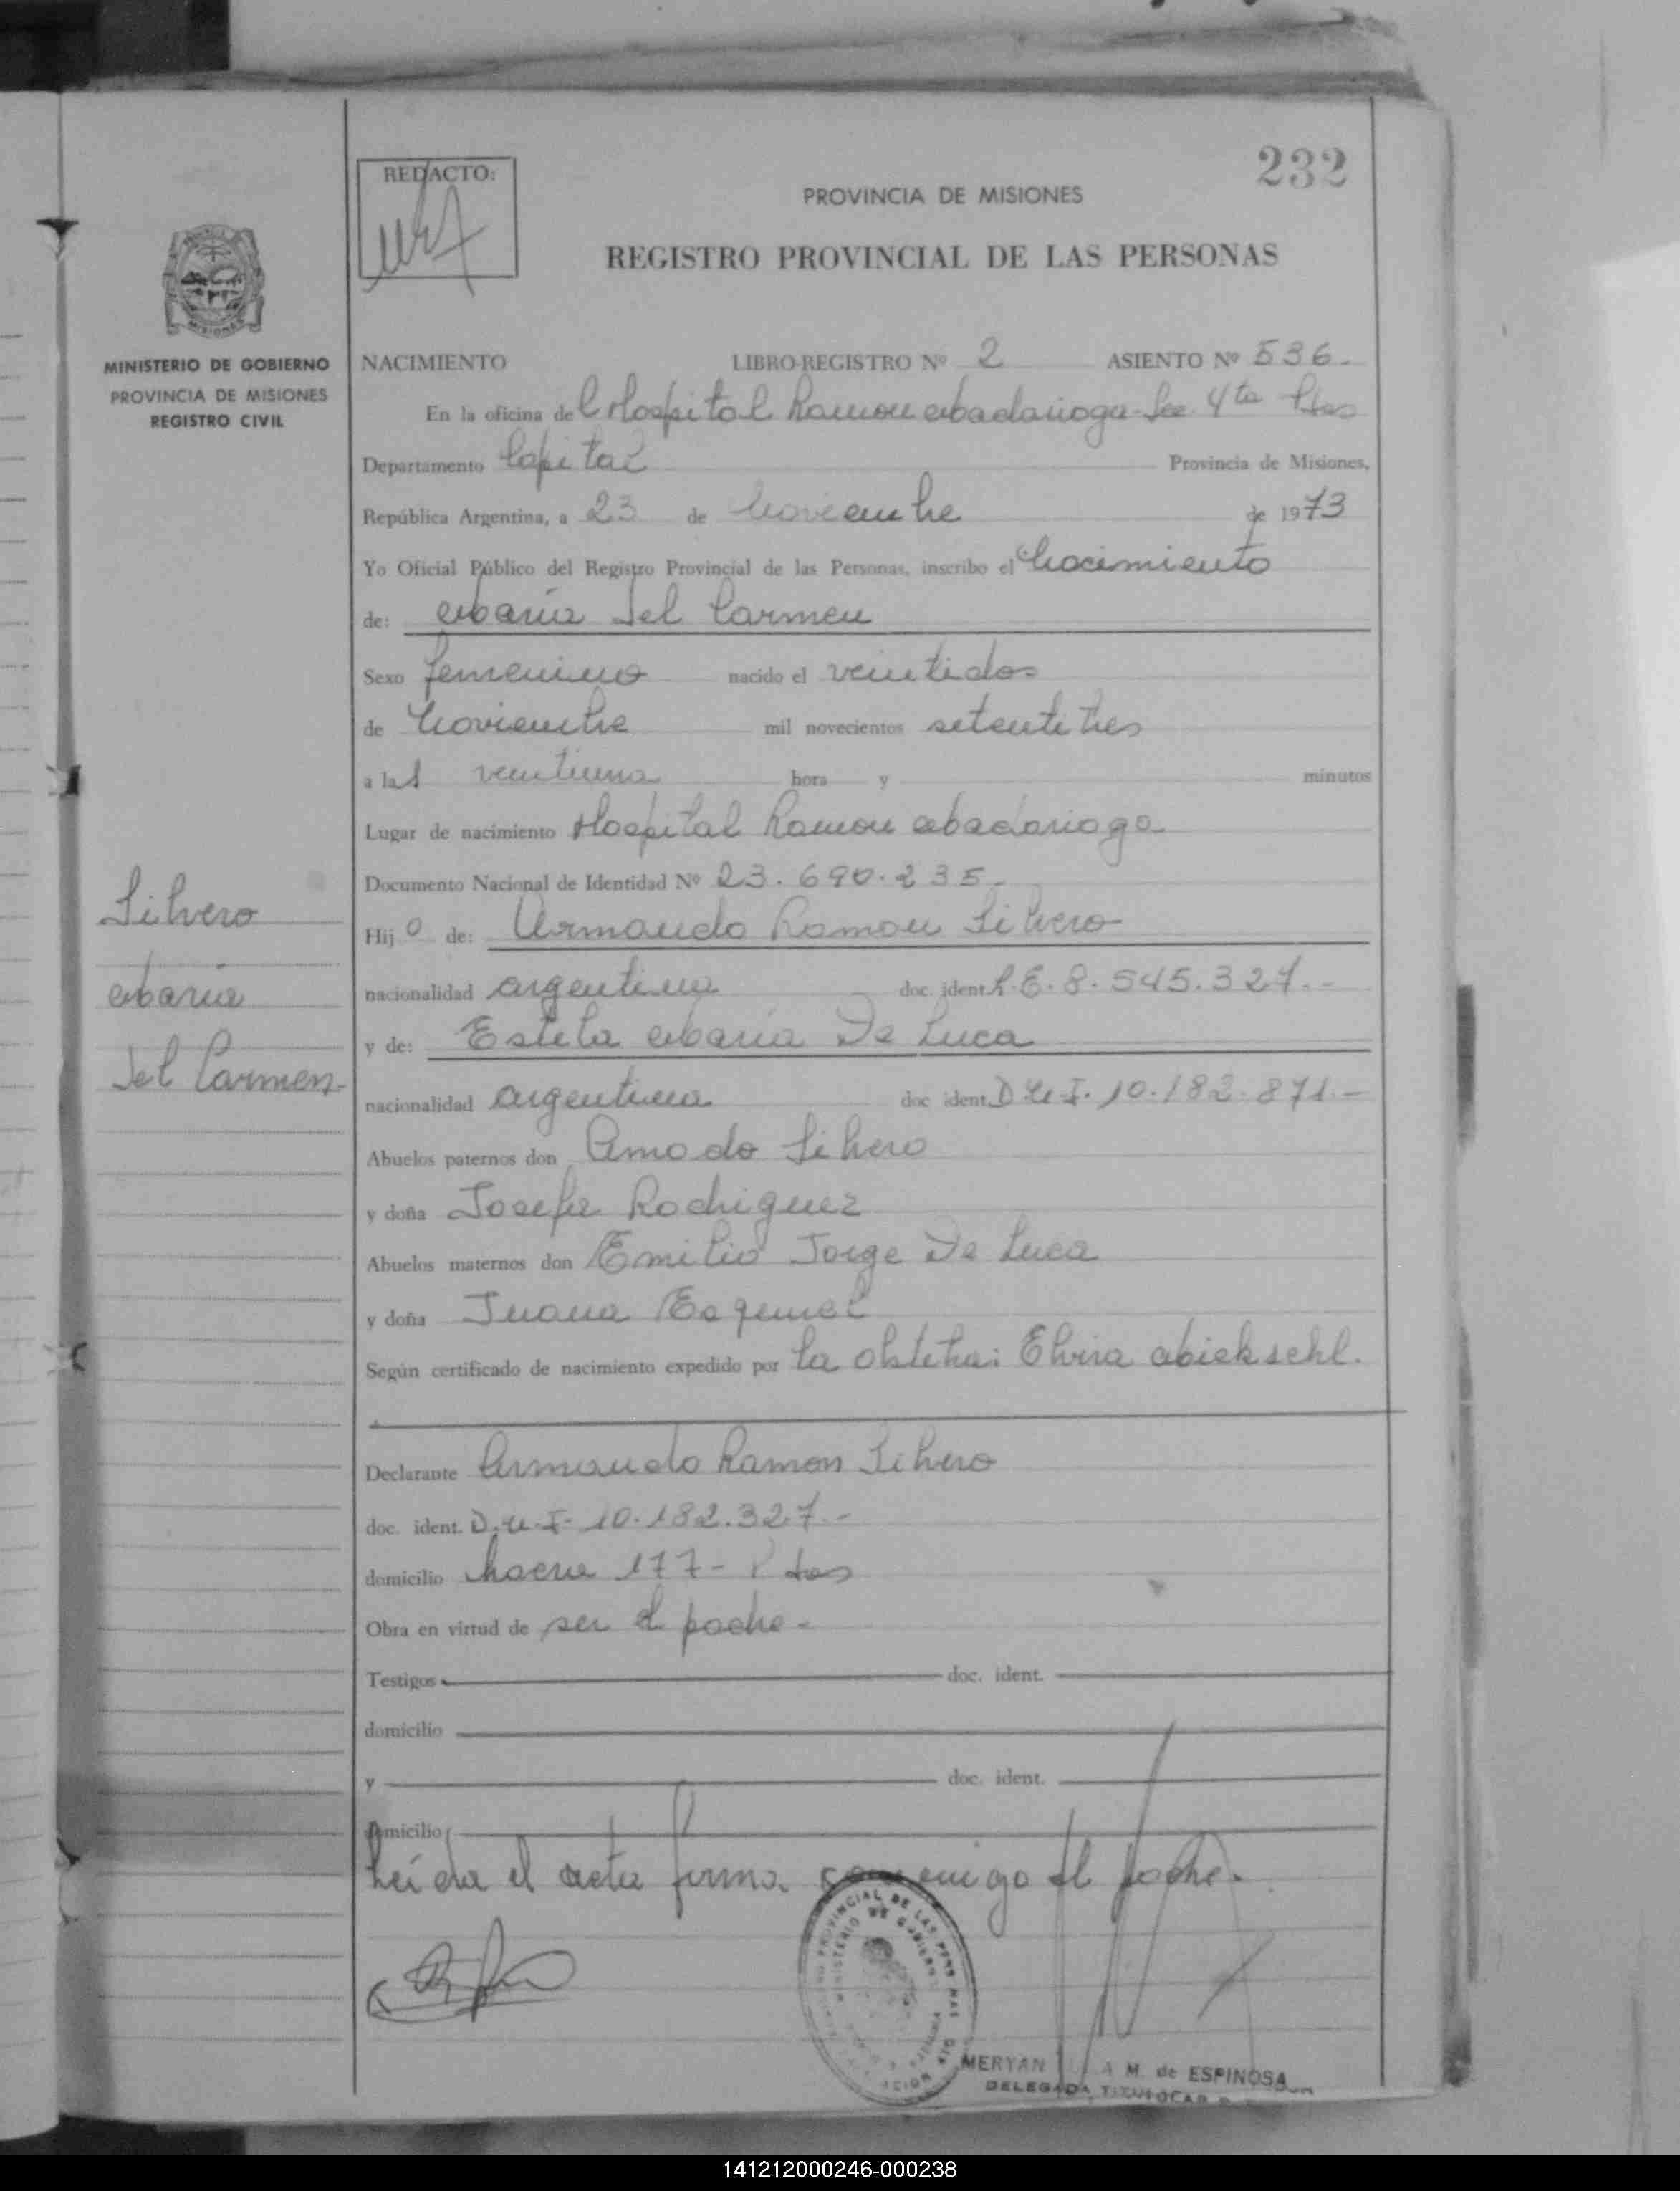 232
REDACTO:
PROVINCIA DE MISIONES
REGISTRO PROVINCIAL DE LAS PERSONAS
MINISTERIO DE GOBIERNO
PROVINCIA DE MISIONES
REGISTRO CIVIL
NACIMIENTO LIBRO-REGISTRO Nº 2 ASIENTO Nº 536.-
En la oficina del Hospital Ramon Madariaga Sec 4ta Pdas
Departamento Capital Provincia de Misiones,
República Argentina, a 23 de Noviembre de 1973
Yo Oficial Público del Registro Provincial de las Personas, inscribo el Nacimiento
de: María del Carmen
Sexo femenino nacido el veintidos
de Noviembre mil novecientos setentitres
a las veintiuna hora y minutos
Lugar de nacimiento Hospital Ramon Madariaga
Documento Nacional de Identidad Nº 23.690.235.-
Silvero
María
del Carmen.-
Hijo de: Armando Ramon Silvero
nacionalidad argentina doc. ident. L.E. 8.545.327.-
y de: Estela María De Luca
nacionalidad argentina doc ident. D.N.I. 10.182.871.-
Abuelos paternos don Amado Silvero
y doña Josefa Rodriguez
Abuelos maternos don Emilio Jorge De Luca
y doña Juana Esquivel
Según certificado de nacimiento expedido por la obstetra: Elvira
Declarante Armando Ramon Silvero
doc. ident. D.N.I. 10.182.327.-
domicilio 177- Pdas
Obra en virtud de ser el padre-
Testigos doc. ident.
domicilio
y doc. ident.
domicilio
Leída el acta firma conmigo el padre.
MERYAN M. de ESPINOSA
DELEGADA TITULAR
141212000246-000238